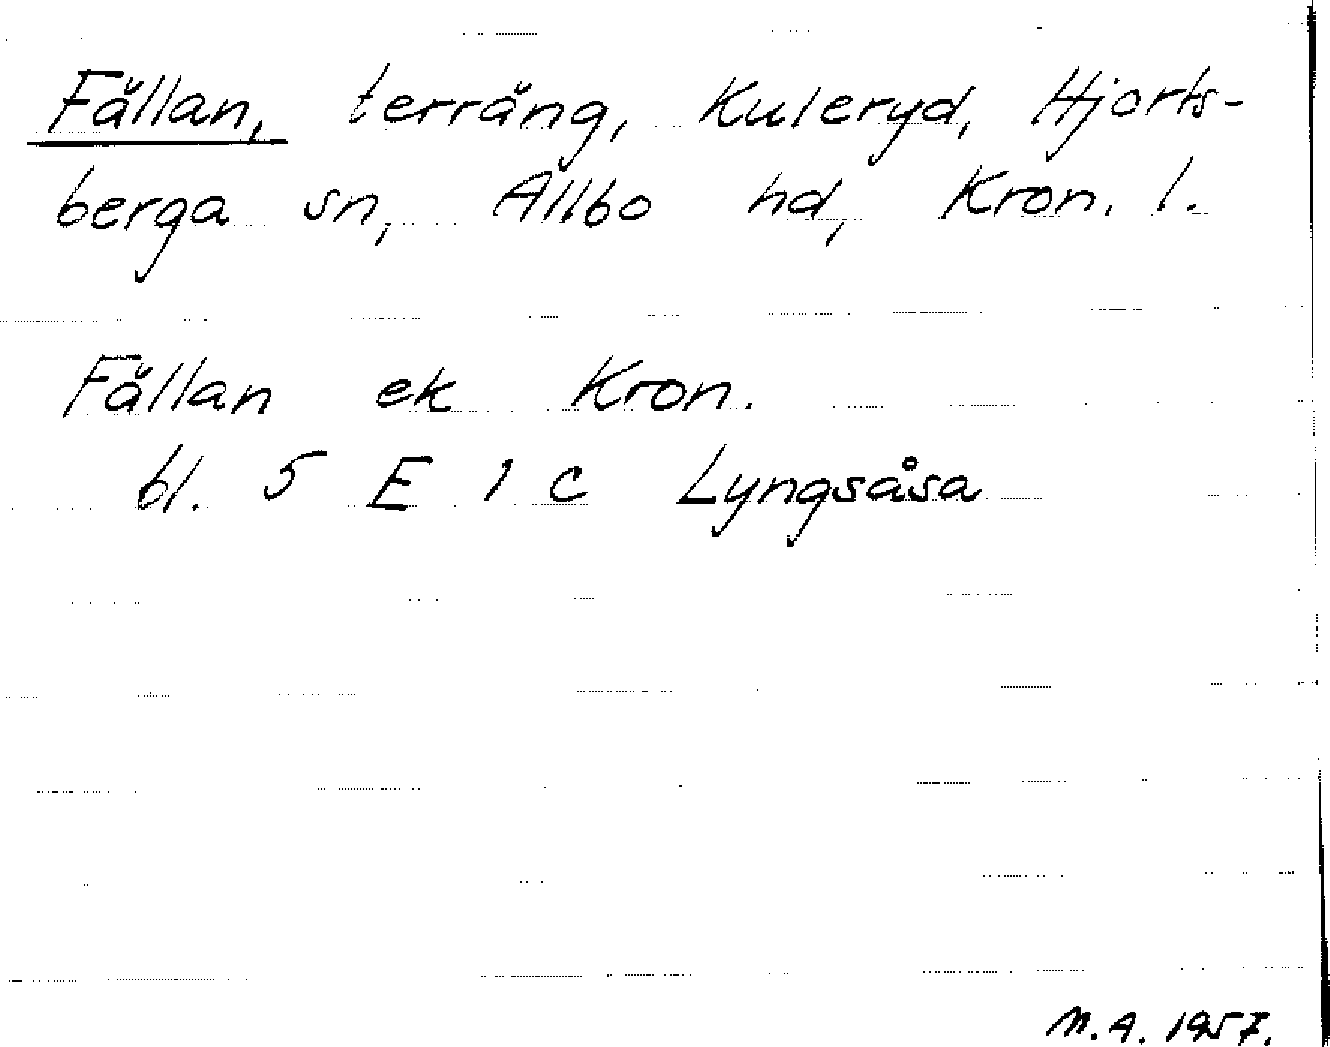 Fällan, terräng, Kuleryd, Hjorts-
berga sn, Allbo hd, Kron. l.
Fällan ek Kron.
bl. 5 E 1 c Lyngsåsa
N.A. 1957.